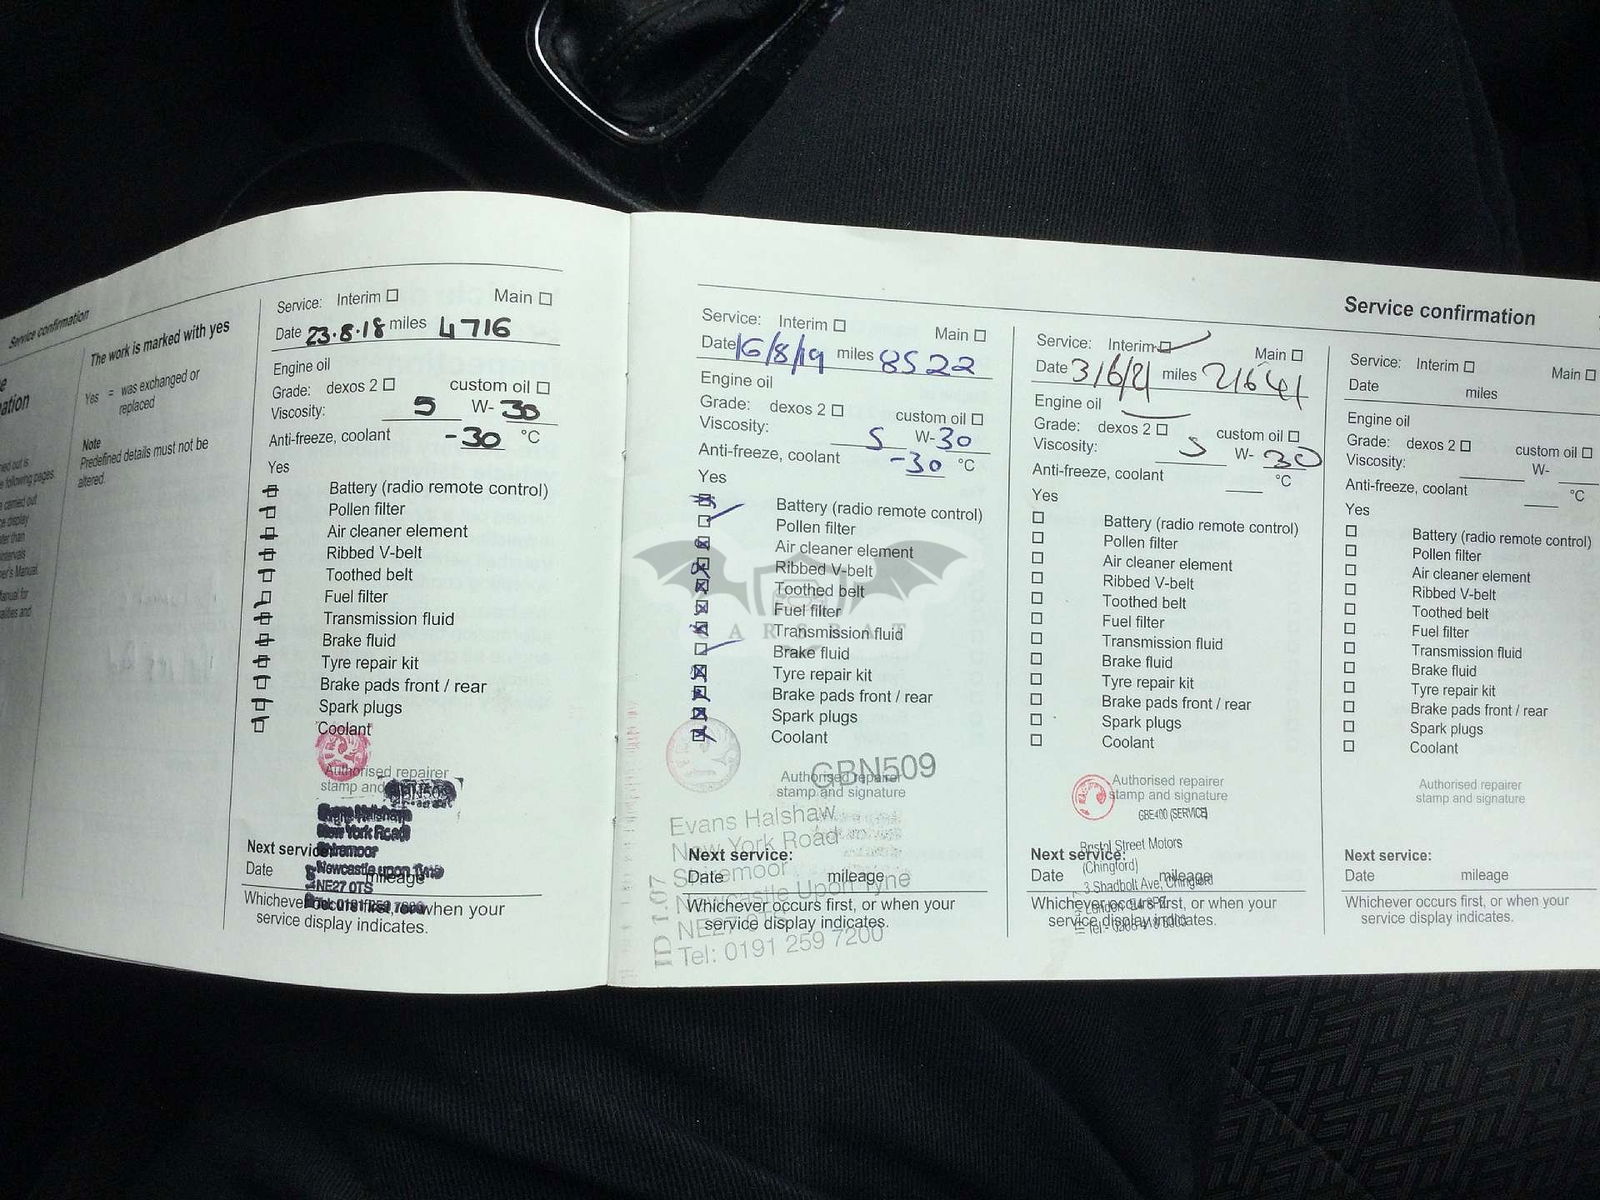 Service confirmation
The work is marked with yes
Yes = was exchanged or
replaced
Note
Predefined details must not be
altered.
Service: Interim ☐ Main ☐
Date 23.8.18 miles 4716
Engine oil
Grade: dexos 2 ☐ custom oil ☐
Viscosity: 5 W-30
Anti-freeze, coolant -30 °C
Yes
Battery (radio remote control)
Pollen filter
Air cleaner element
Ribbed V-belt
Toothed belt
Fuel filter
Transmission fluid
Brake fluid
Tyre repair kit
Brake pads front / rear
Spark plugs
Coolant
Authorised repairer
stamp and
Evans Halshaw
New York Road
Shiremoor
Newcastle upon Tyne
NE27 0TS
Next service:
Date mileage
Whichever occurs first, or when your
service display indicates.
Service confirmation
Service: Interim ☐ Main ☐
Date 16/8/19 miles 8522
Engine oil
Grade: dexos 2 ☐ custom oil ☐
Viscosity: 5 W-30
Anti-freeze, coolant -30 °C
Yes
Battery (radio remote control)
Pollen filter
Air cleaner element
Ribbed V-belt
Toothed belt
Fuel filter
Transmission fluid
Brake fluid
Tyre repair kit
Brake pads front / rear
Spark plugs
Coolant
CARSBAT
GBN509
Authorised repairer
stamp and signature
Evans Halshaw
New York Road
Shiremoor
Newcastle Upon Tyne
NE27 0TS
Tel: 0191 259 7200
ID 1.07
Next service:
Date mileage
Whichever occurs first, or when your
service display indicates.
Service: Interim ☐ Main ☐
Date 3/6/21 miles 21641
Engine oil
Grade: dexos 2 ☐ custom oil ☐
Viscosity: 5 W- 30
Anti-freeze, coolant °C
Yes
Battery (radio remote control)
Pollen filter
Air cleaner element
Ribbed V-belt
Toothed belt
Fuel filter
Transmission fluid
Brake fluid
Tyre repair kit
Brake pads front / rear
Spark plugs
Coolant
Authorised repairer
stamp and signature
GBE400 (SERVICE)
Bristol Street Motors
(Chingford)
3 Shadbolt Ave, Chingford
Next service:
Date mileage
Whichever occurs first, or when your
service display indicates.
Service: Interim ☐ Main ☐
Date miles
Engine oil
Grade: dexos 2 ☐ custom oil ☐
Viscosity: W-
Anti-freeze, coolant °C
Yes
Battery (radio remote control)
Pollen filter
Air cleaner element
Ribbed V-belt
Toothed belt
Fuel filter
Transmission fluid
Brake fluid
Tyre repair kit
Brake pads front / rear
Spark plugs
Coolant
Authorised repairer
stamp and signature
Next service:
Date mileage
Whichever occurs first, or when your
service display indicates.